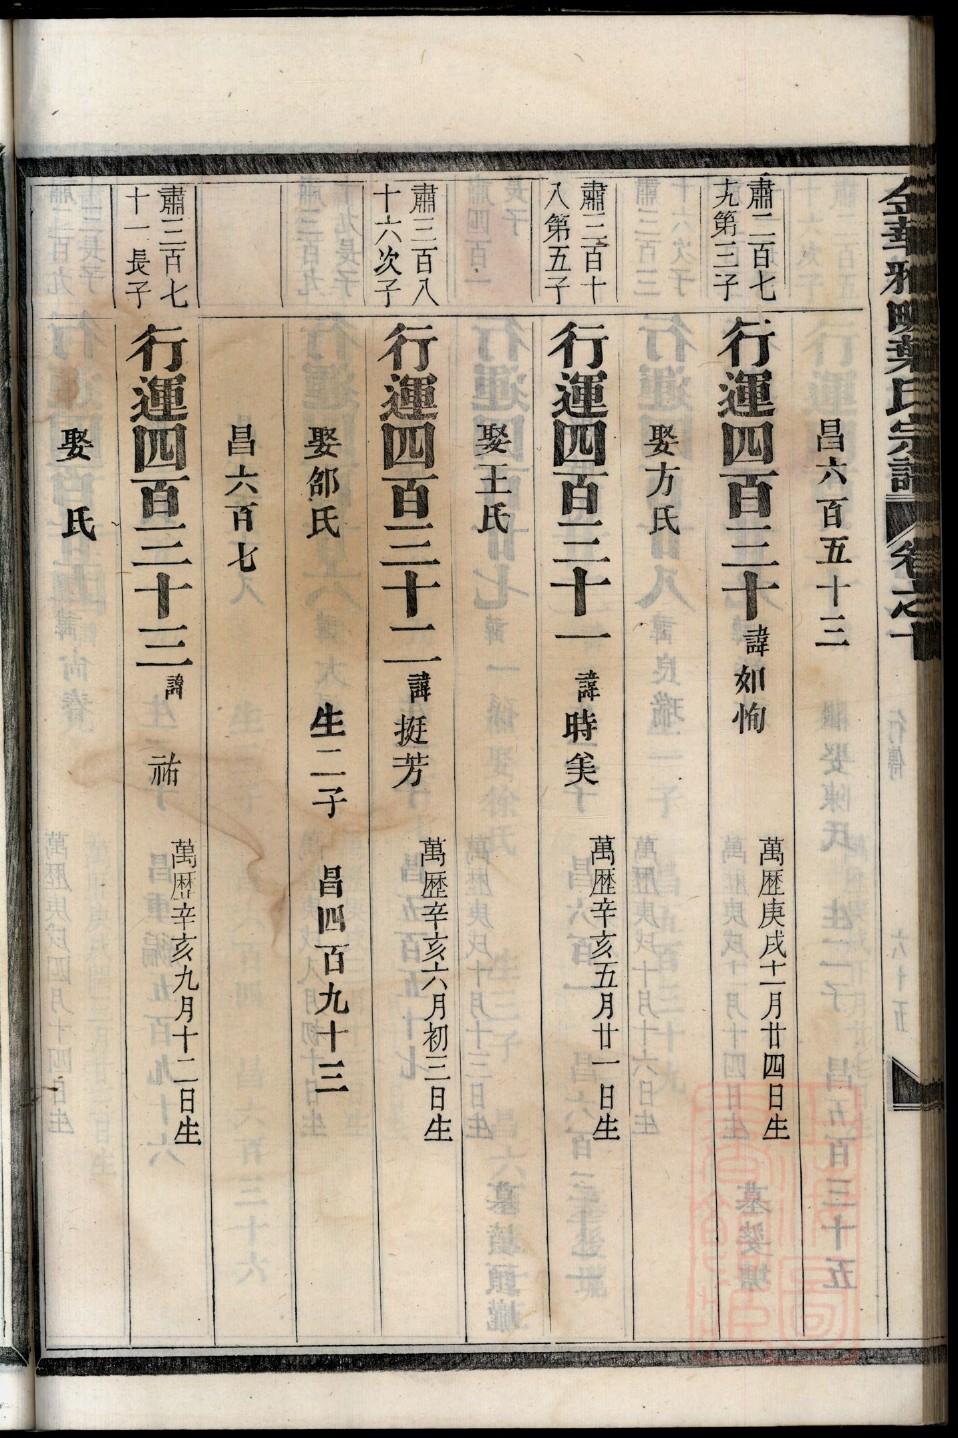 金華雅畈葉氏宗譜 卷之十
昌六百五十三
肅二百七
九第三子
行運四百三十 諱如恂 萬歷庚戌十一月廿四日生
娶方氏
肅三百十
八第五子
行運四百三十一 諱時美 萬歷辛亥五月廿一日生
娶王氏
肅三百八
十六次子
行運四百三十二 諱挺芳 萬歷辛亥六月初三日生
娶邵氏 生二子 昌四百九十三
昌六百七
肅三百七
十一長子
行運四百三十三 諱祐 萬歷辛亥九月十二日生
娶 氏